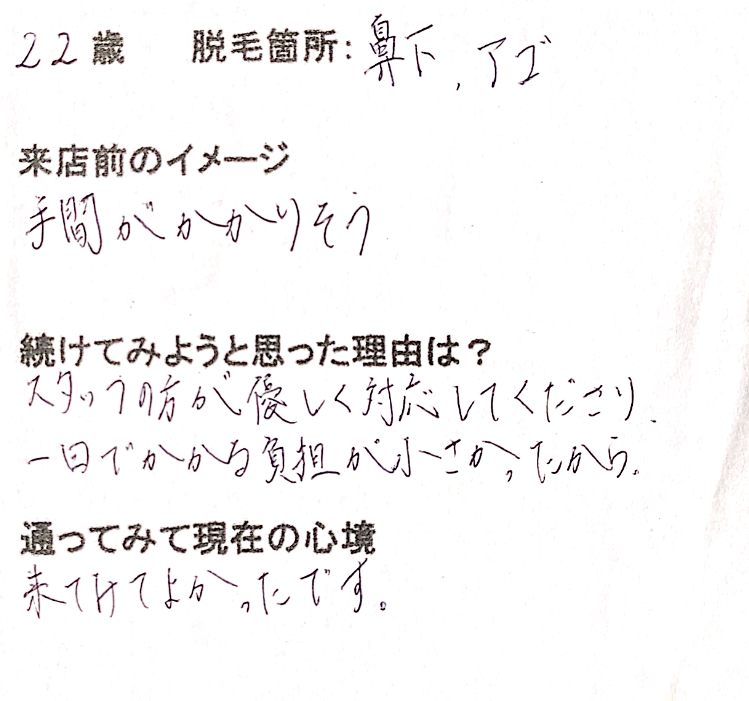 22歳 脱毛箇所：鼻下、アゴ
来店前のイメージ
手間がかかりそう
続けてみようと思った理由は？
スタッフの方が優しく対応してくださり、
一日でかかる負担が小さかったから。
通ってみて現在の心境
来てけてよかったです。